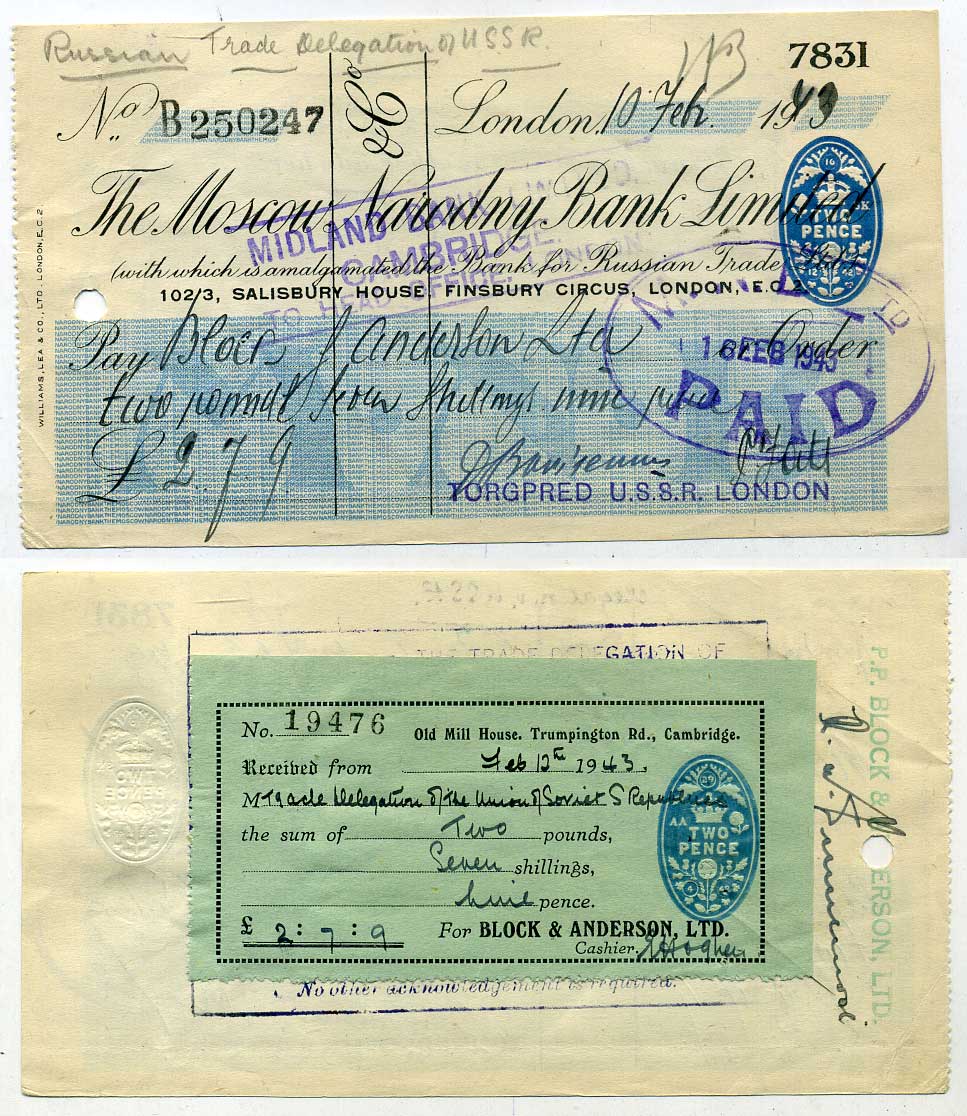 Russian Trade Delegation of U.S.S.R.
7831
No. B 250247
& Co
London, 10 Feb. 1943
The Moscow Narodny Bank Limited
(with which is amalgamated the Bank for Russian Trade
102/3, SALISBURY HOUSE, FINSBURY CIRCUS, LONDON, E.C.2.
MIDLAND BANK
CAMBRIDGE
TO HEAD OFFICE, LONDON
TWO
PENCE
WILLIAMS, LEA & CO., LTD. LONDON, E.C.2
Pay Block & Anderson Ltd or Order
two pounds seven shillings nine pence
16 FEB 1943
PAID
£ 2. 7 9
TORGPRED U.S.S.R. LONDON
THE TRADE DELEGATION OF
No. 19476
Old Mill House. Trumpington Rd., Cambridge.
Received from Feb 12th 1943.
M Trade Delegation of the Union of Soviet S Republics
the sum of Two pounds,
Seven shillings,
Nine pence.
£ 2 : 7 : 9
For BLOCK & ANDERSON, LTD.
Cashier,
AA
TWO
PENCE
No other acknowledgement is required.
P.P. BLOCK & ANDERSON, LTD.